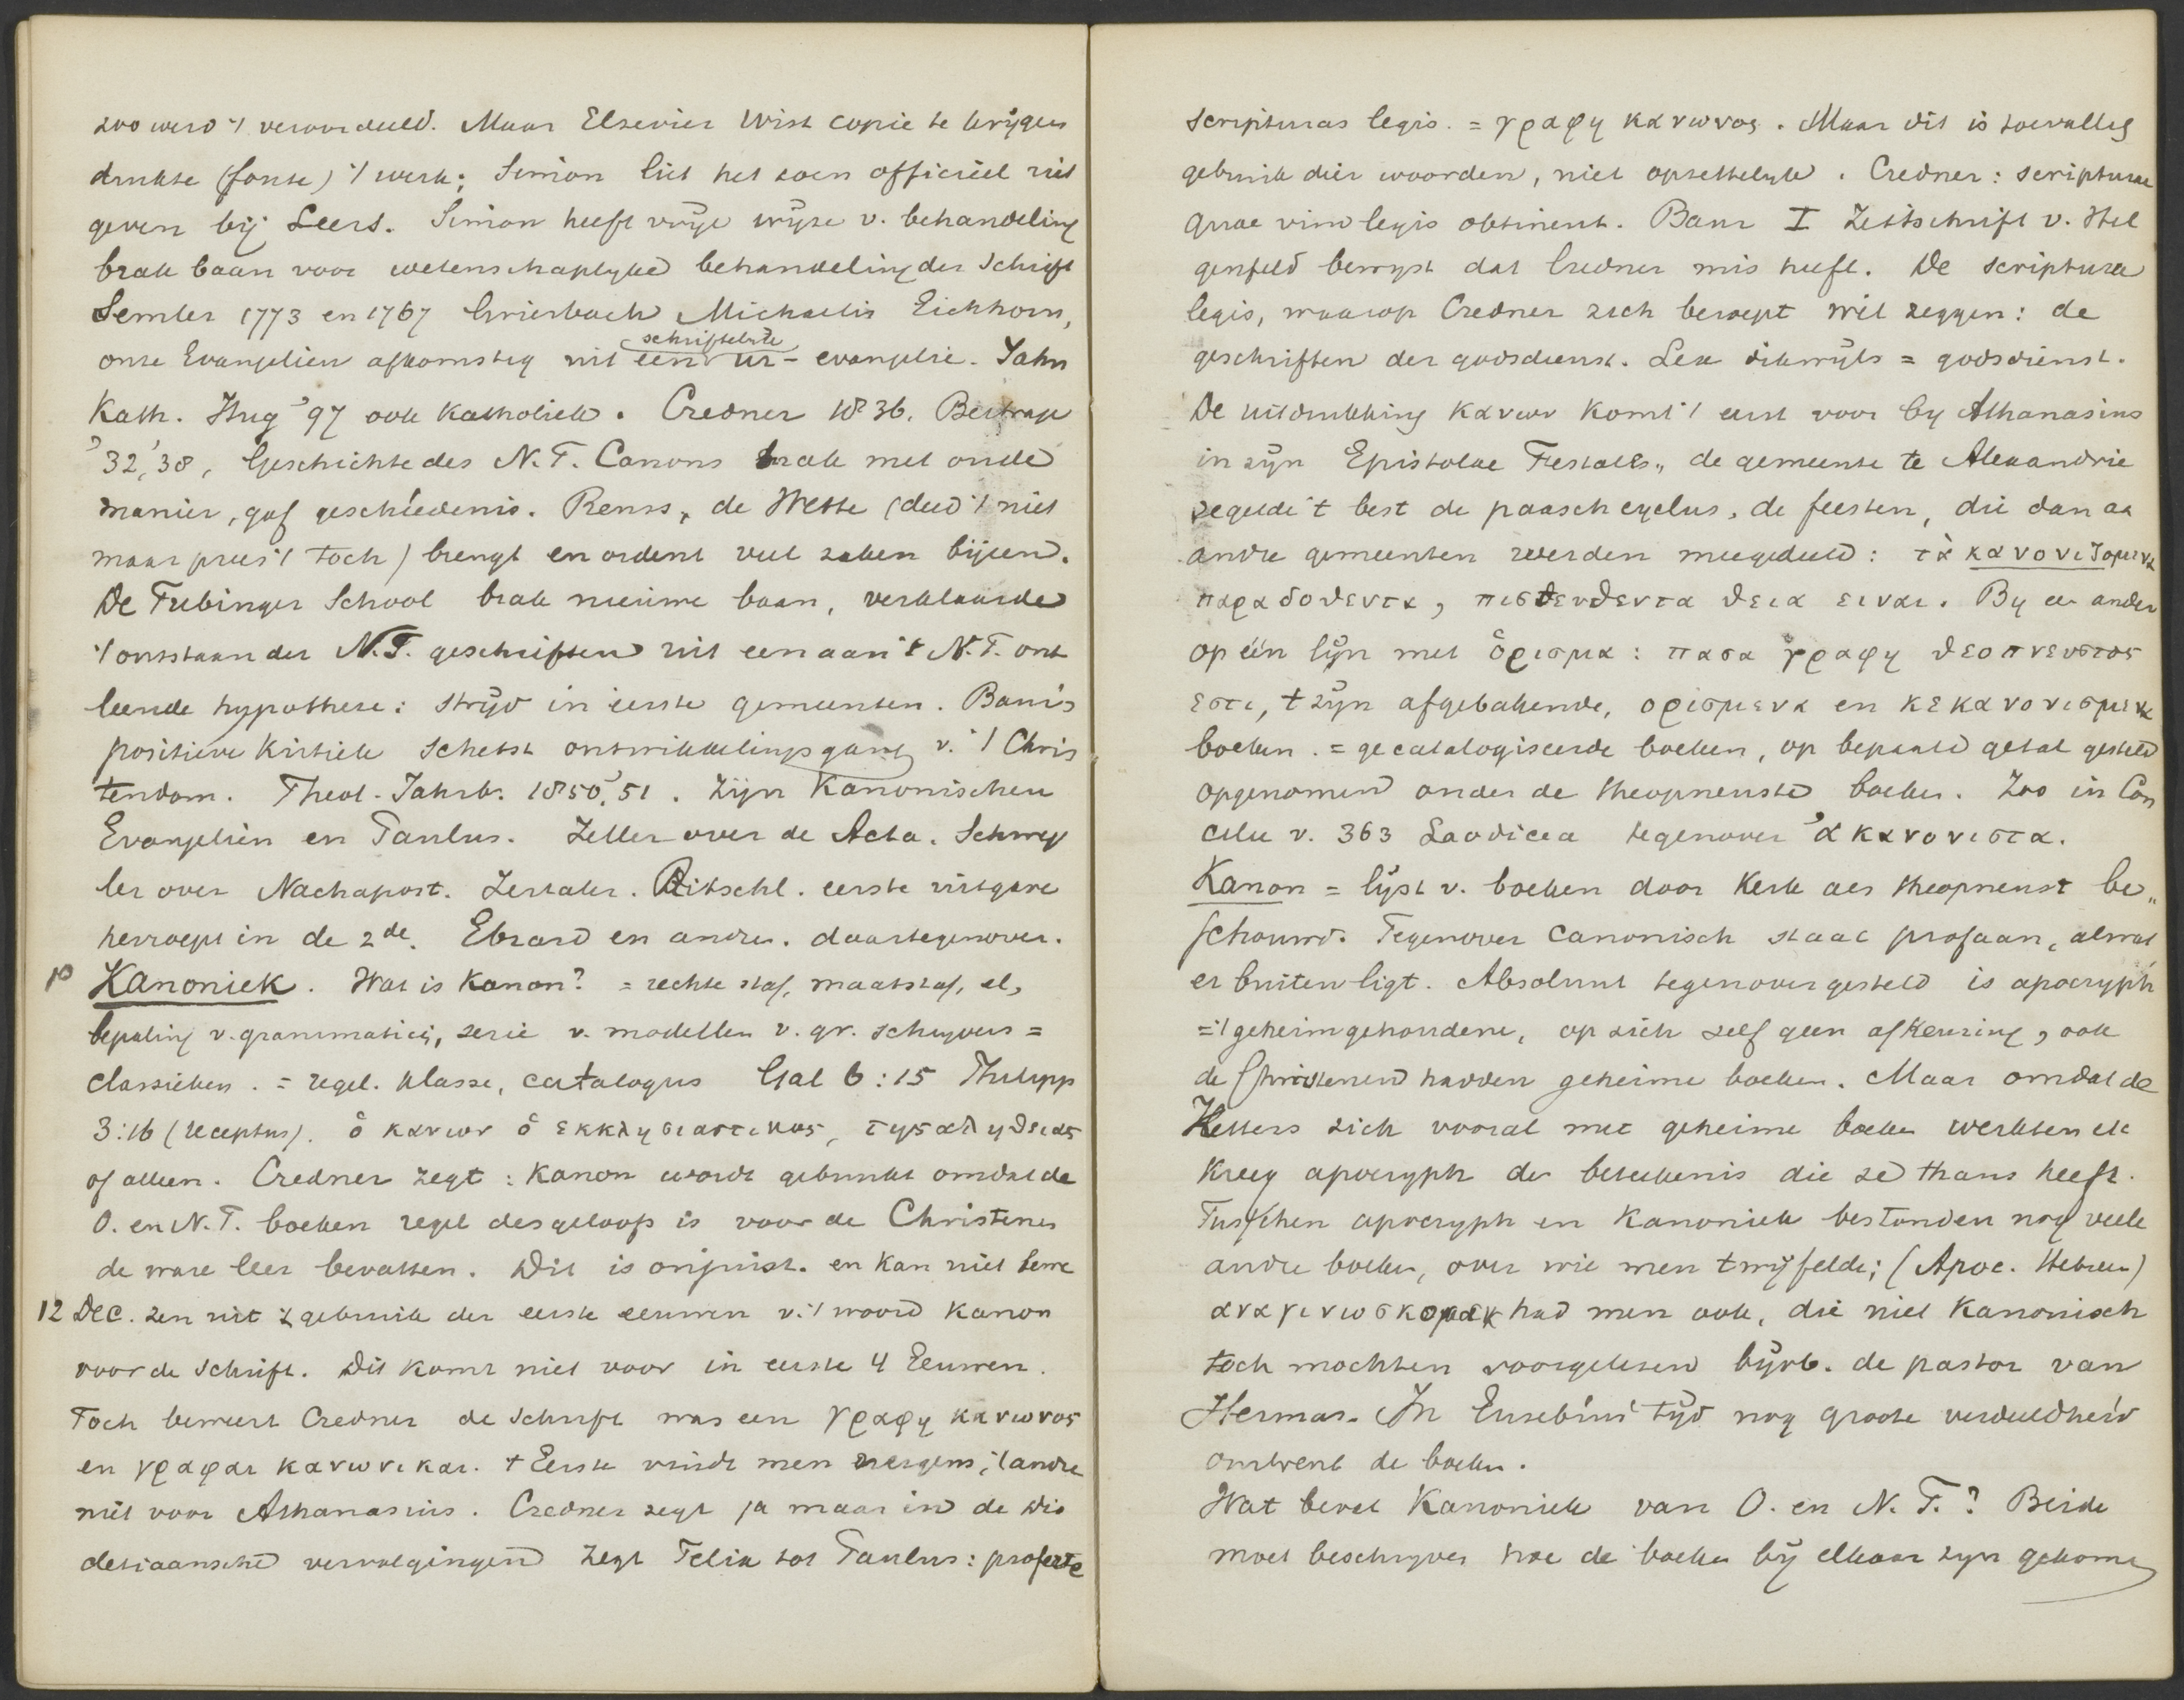 zoo werd 't veroordeeld. Maar Elsevier wist copie te krijgen
drukte (foute) 't werk; Simon liet het toen officiëel uit
geven bij Leers. Simon heeft vrije wijze v. behandeling
brak baan voor wetenschaplyke behandeling der Schrift
Semler 1773 en 1767 Griesbach Michaelis Eichhorn,
onze Evangelien afkomstig uit een schriftelyke ur-evangelie. Jahn
Kath. Hug '97 ook Katholiek. Credner 1836. Beitrage
'32, '38, Geschichte des N.T. Canons brak met oude
manier, gaf geschiedenis. Reuss, de Wette (deed 't niet
maar prees 't toch) brengt en ordent veel zaken bijeen.
De Tubinger School brak nieuwe baan, verklaarde
't ontstaan der N.T. geschriften uit een aan 't N.T. ont
leende hypothese: strijd in eerste gemeenten. Baur's
positieve kritiek schetst ontwikkelingsgang v. 't Chris
tendom. Theol. Jahrb. 1850, '51. Zijn Kanonischen
Evangelien en Paulus. Zeller over de Acta. Schweg
ler over Nachapost. Zeitalter. Ritschl. eerste uitgave
herroept in de 2de. Ebrard en andre. daartegenover.
Kanoniek. Wat is Kanon? = rechte staf, maatstaf, el,
bepaling v. grammatici, serie v. modellen v. gr. schryvers =
classieken. = regel. klasse, catalogus Gal 6:15 Philipp
3:16 (receptus). ὁ κανων ὁ εκκλησιαστικος, της αληθειας
of alleen. Credner zegt: Kanon wordt gebruikt omdat de
O. en N.T. boeken regel des geloofs is voor de Christenen
de ware leer bevatten. Dit is onjuist. en kan niet bewe
12 Dec. zen uit 't gebruik der eerste eeuwen v. 't woord Kanon
voor de Schrift. Dit komt niet voor in eerste 4 Eeuwen.
Toch beweert Credner de Schrift was een γραφη κανωνος
en γραφαι κανωνικαι. † Eerste vindt men nergens, 't andre
niet voor Athanasius. Credner zegt ja maar in de Dio
cletiaansche vervolgingen zegt Felix tot Paulus: proferte
scripturas legis. = γραφη κανωνος. Maar dit is toevallig
gebruik dier woorden, niet opzettelyk. Credner: scripturae
quae vim legis obtinent. Baur I Zeitschrift v. Hil
genfeld bewyst dat Credner mis heeft. De scripturae
legis, waarop Credner zich beroept wil zeggen: de
geschriften der godsdienst. Lex dikwijls = godsdienst.
De uitdrukking κανων komt 't eerst voor by Athanasius
in zijn Epistolae Festales, de gemeente te Alexandrie
regelde 't best de paaschcyclus, de feesten, die dan aa
andre gemeenten werden meegedeeld: τὰ κανονιζομενα
παραδοθεντα, πιστευθεντα θεια ειναι. By een ander
op één lijn met ὁρισμα: πασα γραφη θεοπνευστος
εστι, † zijn afgebakende, ορισμενα en κεκανονισμενα
boeken. = gecatalogiseerde boeken, op bepaald getal gesteld
opgenomen onder de theopneuste boeken. Zoo in Con
cilie v. 363 Laodicea tegenover ἀκανονιστα.
Kanon = lijst v. boeken door Kerk als theopneust be„
schouwd. Tegenover Canonisch staat profaan, alwat
er buiten ligt. Absoluut tegenovergesteld is apocryph
= 't geheimgehoudene, op zich zelf geen afkeuring, ook
de Christenen hadden geheime boeken. Maar omdat de
Ketters zich vooral met geheime boeken werkten etc
kreeg apocryph de beteekenis die ze thans heeft.
Tusschen apocryph en Kanoniek bestonden nog veele
andre boeken, over wie men twijfelde; (Apoc. Hebreen)
αναγινωσκομενα had men ook, die niet Kanonisch
toch mochten voorgelezen bijvb. de pastor van
Hermas. In Eusebius' tijd nog groote verdeeldheid
omtrent de boeken.
Wat bevat Kanoniek van O. en N. T.? Beide
moet beschryven hoe de boeken bij elkaar zyn gekomen